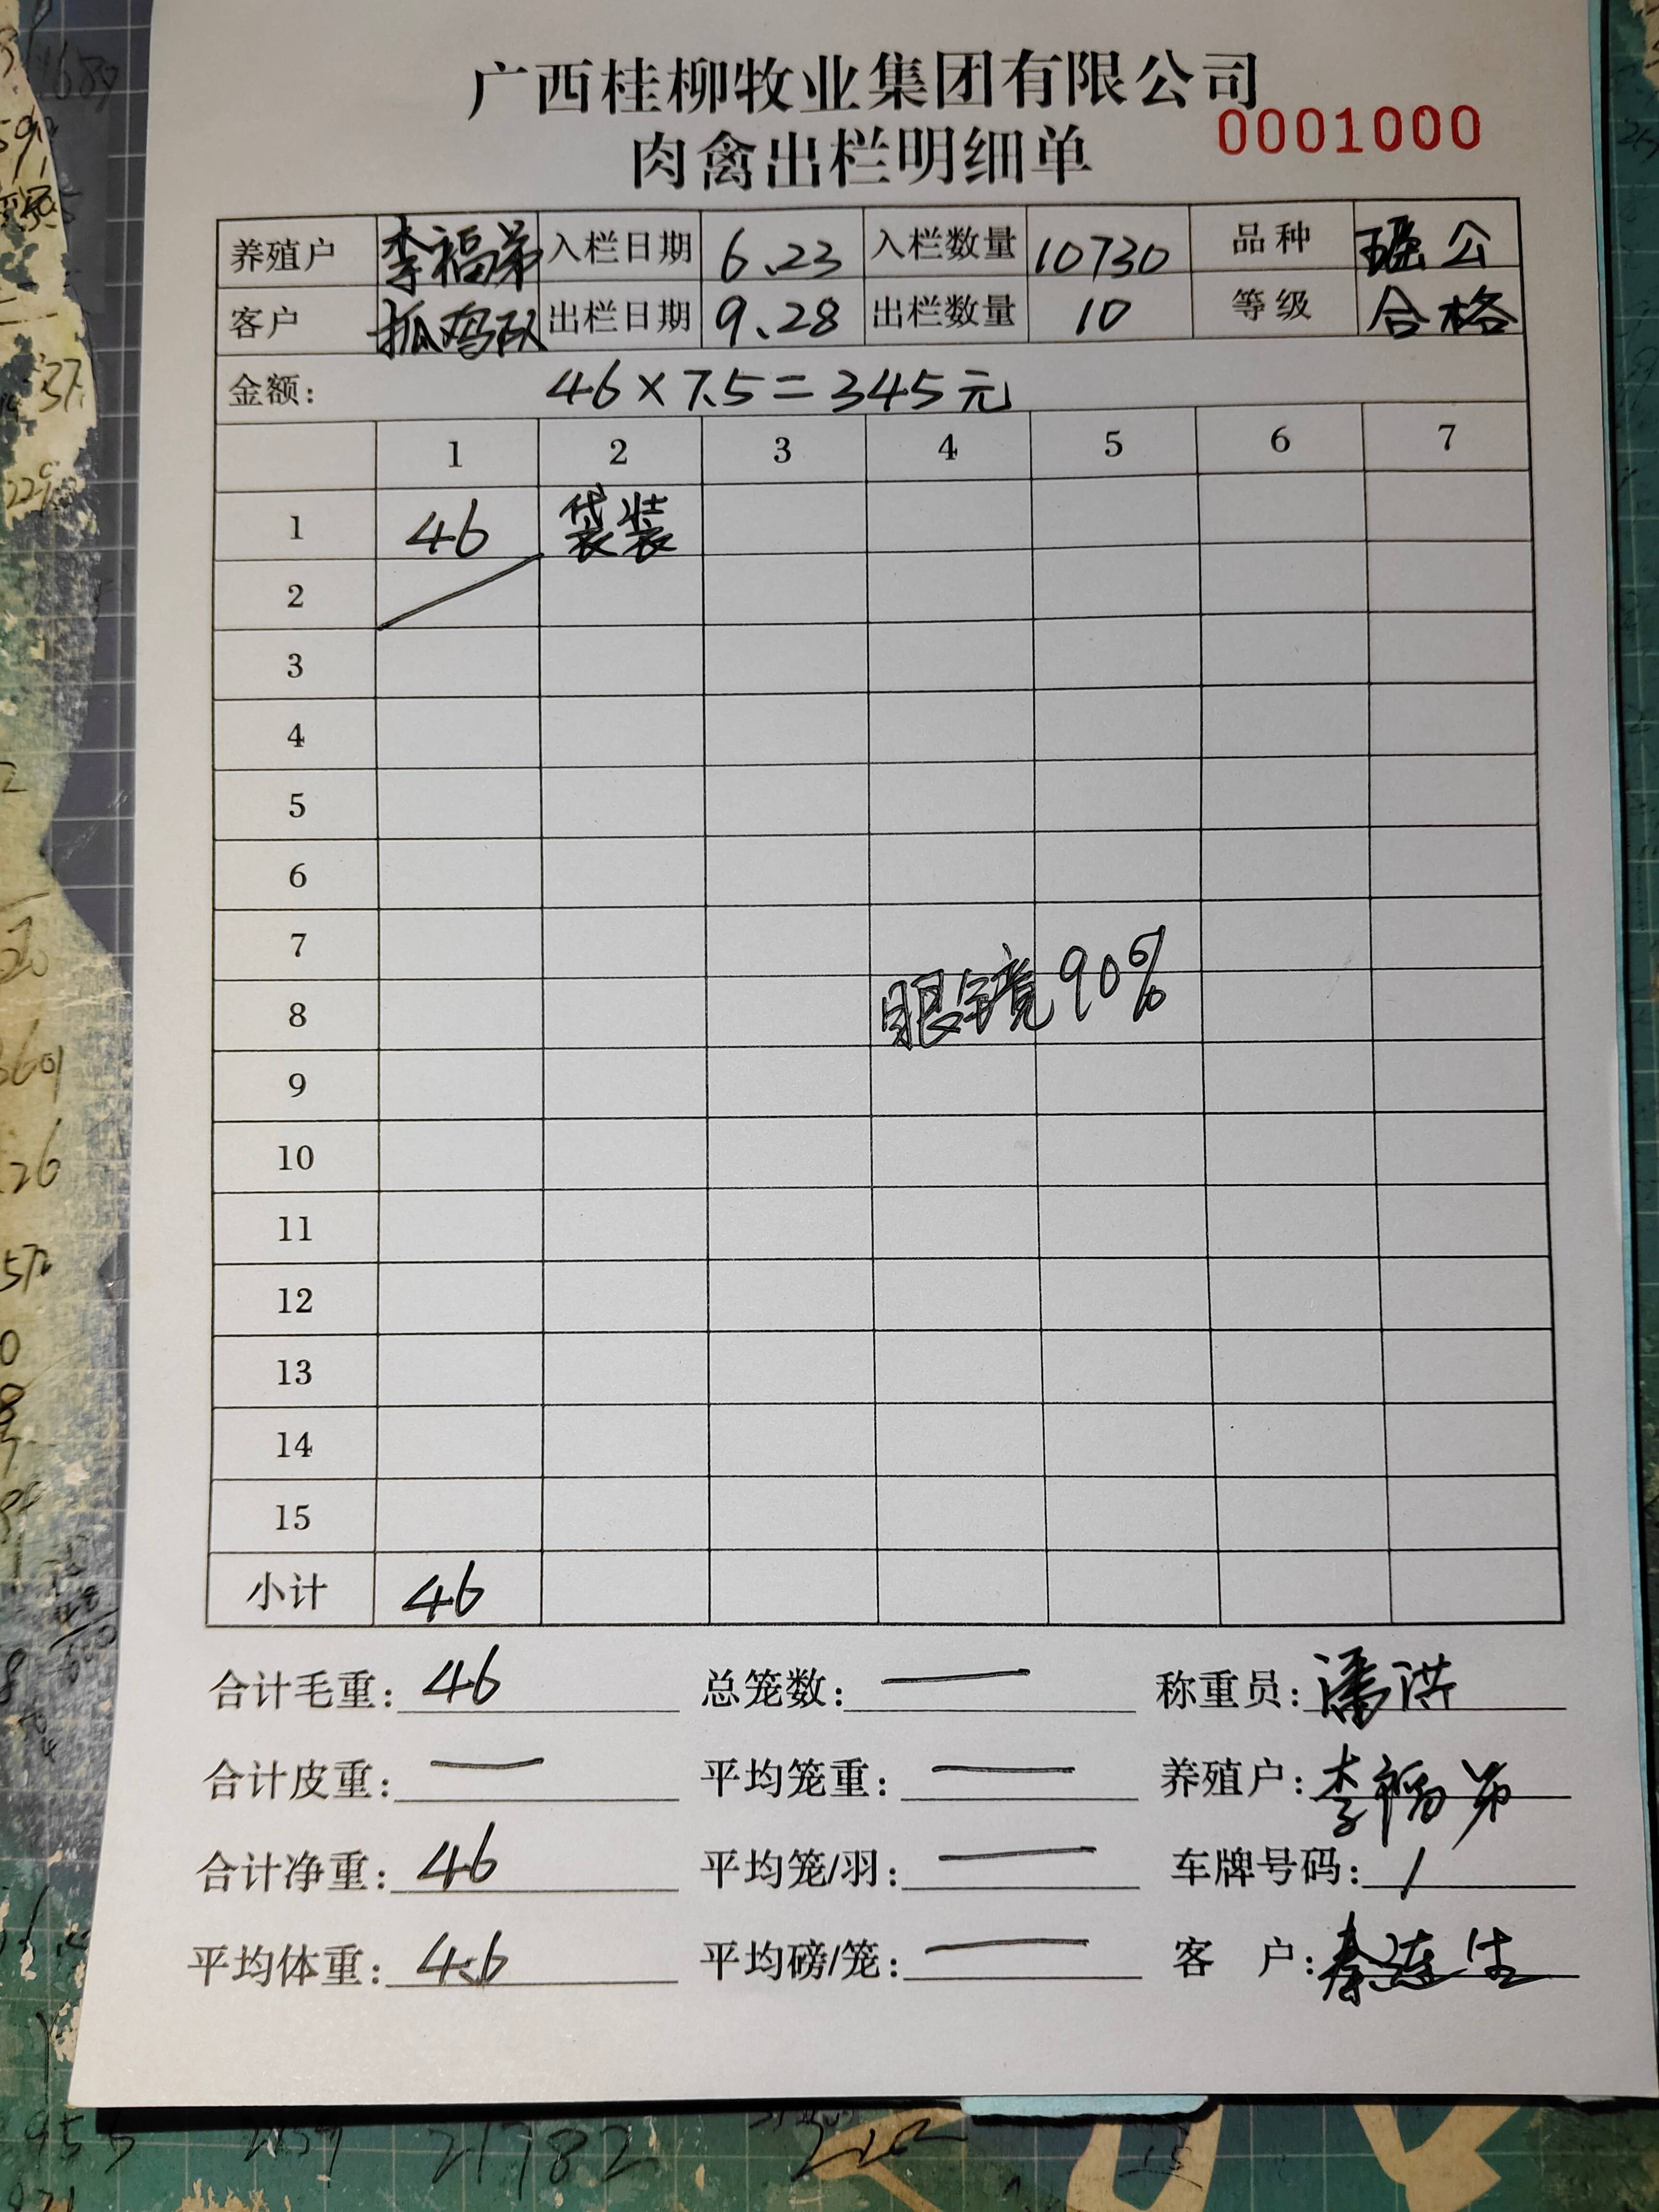 广西桂柳牧业集团有限公司
肉禽出栏明细单 0001000
养殖户 李福弟 入栏日期 6.23 入栏数量 10730 品种 瑶公
客户 抓鸡队 出栏日期 9.28 出栏数量 10 等级 合格
金额: 46×7.5=345元
1 2 3 4 5 6 7
1 46 袋装
2
3
4
5
6
7
8 眼镜90%
9
10
11
12
13
14
15
小计 46
合计毛重: 46 总笼数: — 称重员: 潘洪
合计皮重: — 平均笼重: — 养殖户: 李福弟
合计净重: 46 平均笼/羽: — 车牌号码: /
平均体重: 4.6 平均磅/笼: — 客户: 秦连生
21782